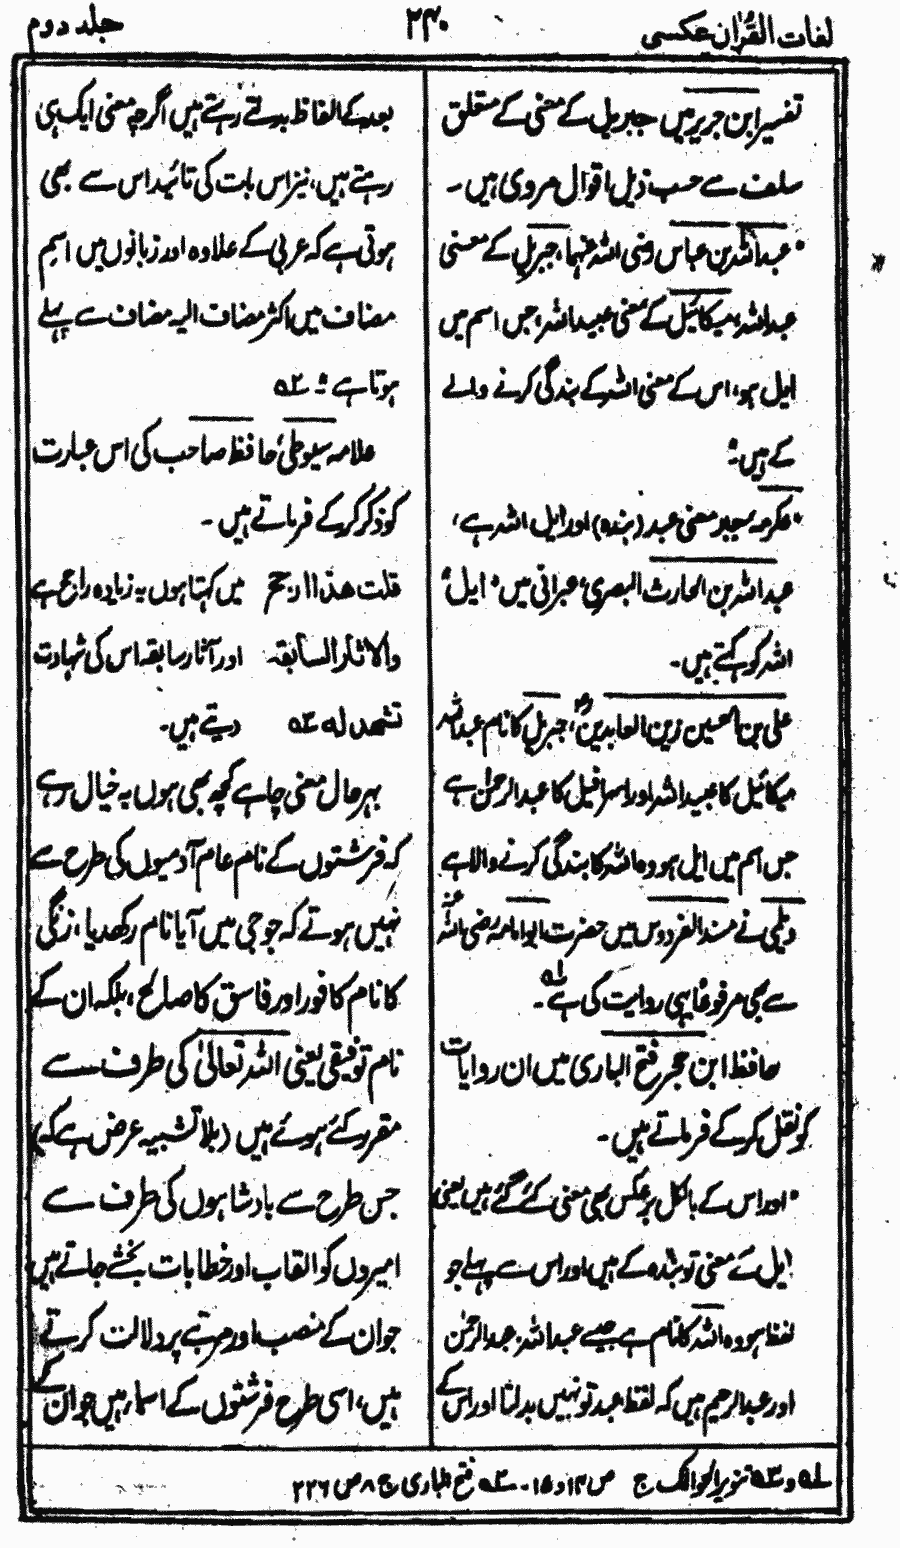 لغات القرآن عکسی
۲۴۰
جلد دوم
تفسیر ابن جریر میں جبریل کے معنی کے متعلق
سلف سے حسب ذیل اقوال مروی ہیں۔
• عبداللہ بن عباس رضی اللہ عنہما، جبریل کے معنی
عبداللہ، میکائیل کے معنی عبیداللہ، جس اسم میں
ایل ہو، اس کے معنی اللہ کے بندگی کرنے والے
کے ہیں۔
• عکرمہ، جبر بمعنی عبد (بندہ) اور ایل اللہ ہے،
عبداللہ بن الحارث البصری، عبرانی میں ایل
اللہ کو کہتے ہیں۔
علی بن الحسین زین العابدین، جبریل کا نام عبداللہ
میکائیل کا عبیداللہ اور اسرافیل کا عبدالرحمٰن ہے
جس اسم میں ایل ہو وہ اللہ کا بندگی کرنے والا ہے
دیلمی نے مسند الفردوس میں حضرت ابوامامہ رضی اللہ عنہ
سے بھی مرفوعاً یہی روایت کی ہے۔
حافظ ابن حجر فتح الباری میں ان روایات
کو نقل کر کے فرماتے ہیں۔
• اور اس کے بالکل برعکس بھی معنی کئے گئے ہیں یعنی
ایل کے معنی تو بندہ کے ہیں اور اس سے پہلے جو
لفظ ہو وہ اللہ کا نام ہے جیسے عبداللہ، عبدالرحمٰن
اور عبدالرحیم ہیں کہ لفظ عبد تو نہیں بدلتا اور اس کے
بعد کے الفاظ بدلتے رہتے ہیں اگرچہ معنی ایک ہی
رہتے ہیں، نیز اس بات کی تائید اس سے بھی
ہوتی ہے کہ عربی کے علاوہ اور زبانوں میں اسم
مضاف میں اکثر مضاف الیہ مضاف سے پہلے
ہوتا ہے
علامہ سیوطی حافظ صاحب کی اس عبارت
کو ذکر کر کے فرماتے ہیں۔
قلت هذا ارجح میں کہتا ہوں یہ زیادہ راجح ہے
والاثار السابقۃ اور آثار سابقہ اس کی شہادت
تشهد له دیتے ہیں۔
بہرحال معنی چاہے کچھ بھی ہوں یہ خیال رہے
کہ فرشتوں کے نام عام آدمیوں کی طرح کے
نہیں ہوتے کہ جو جی میں آیا نام رکھ دیا، زنگی
کا نام کافور اور فاسق کا صالح، بلکہ ان کے
نام توفیقی یعنی اللہ تعالیٰ کی طرف سے
مقرر کئے ہوئے ہیں (بلا تشبیہ عرض ہے کہ)
جس طرح سے بادشاہوں کی طرف سے
امیروں کو القاب اور خطابات بخشے جاتے ہیں
جو ان کے منصب اور مرتبے پر دلالت کرتے
ہیں، اسی طرح فرشتوں کے اسماء ہیں جو ان کے
لہ و ۳ہ تنویر الحوالک ج ص ۱۴ و ۱۵۔ ۲ہ فتح الباری ج ۸ ص ۲۲۶